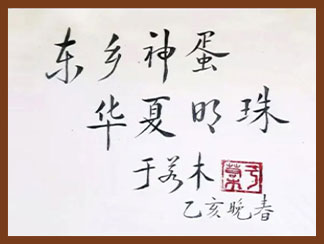 东乡神蛋
华夏明珠
于若木
乙亥晚春